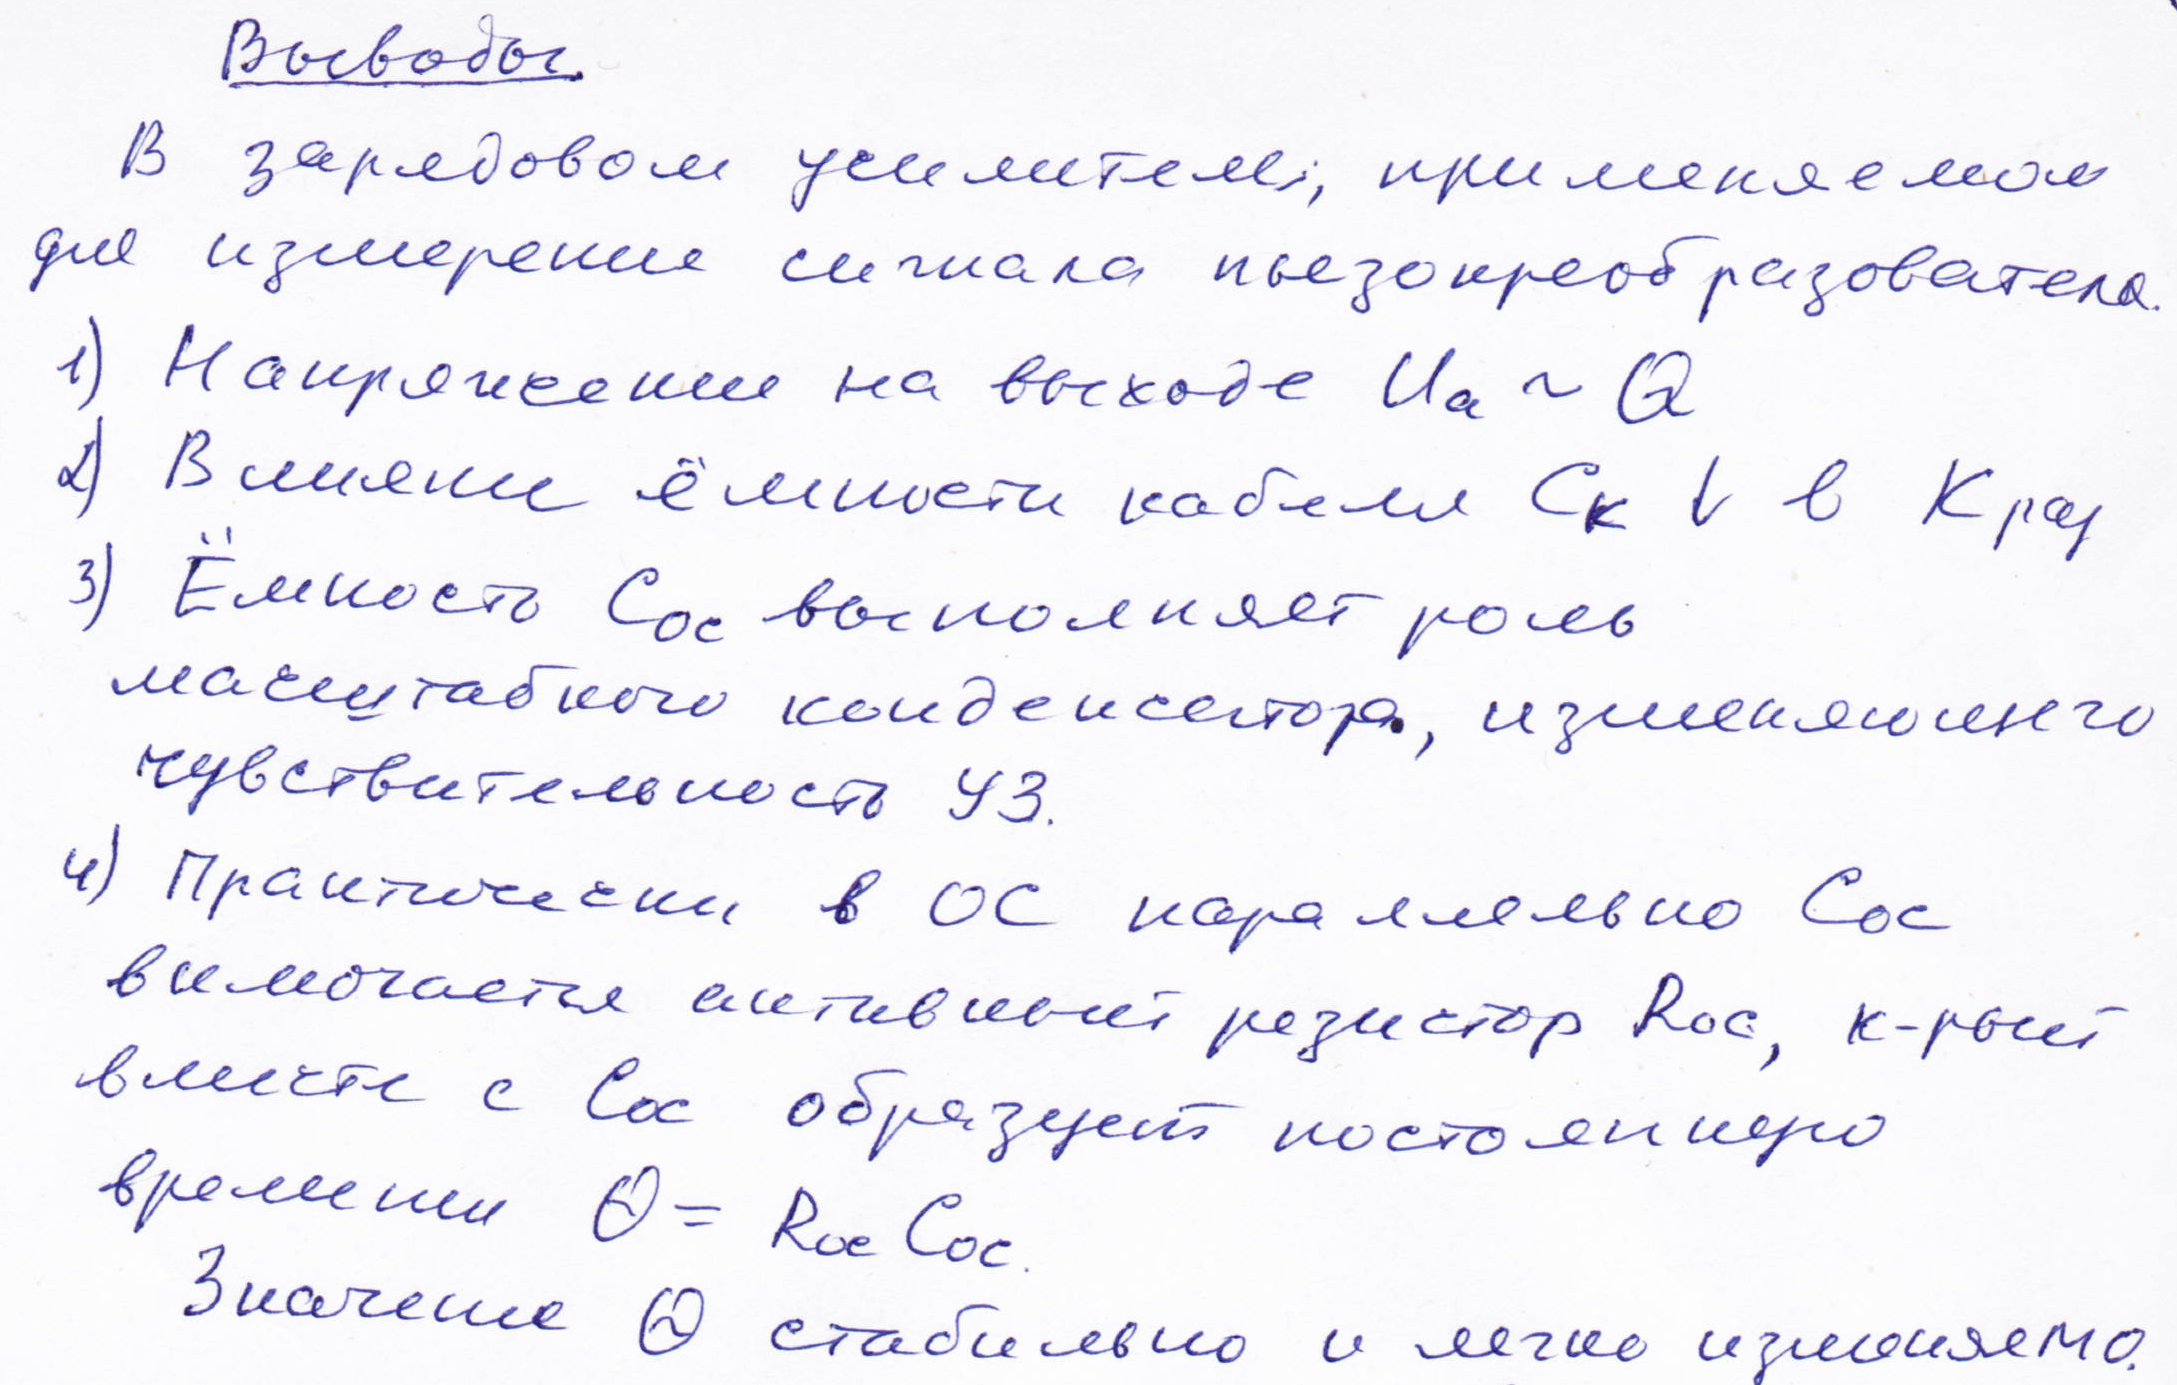 Выводы.
В зарядовом усилителе, применяемом
для измерение сигнала пьезопреобразователя.
1) Напряжение на выходе Uа ~ Q
2) Влияние ёмкости кабеля Cк ↓ в К раз
3) Ёмкость Cос выполняет роль
масштабного конденсатора, изменяющего
чувствительность УЗ.
4) Практически в ОС параллельно Cос
включается активный резистор Rос, к-рый
вместе с Cос образует постоянную
времени Θ = Rос Cос.
Значение Θ стабильно и легко изменяемо.